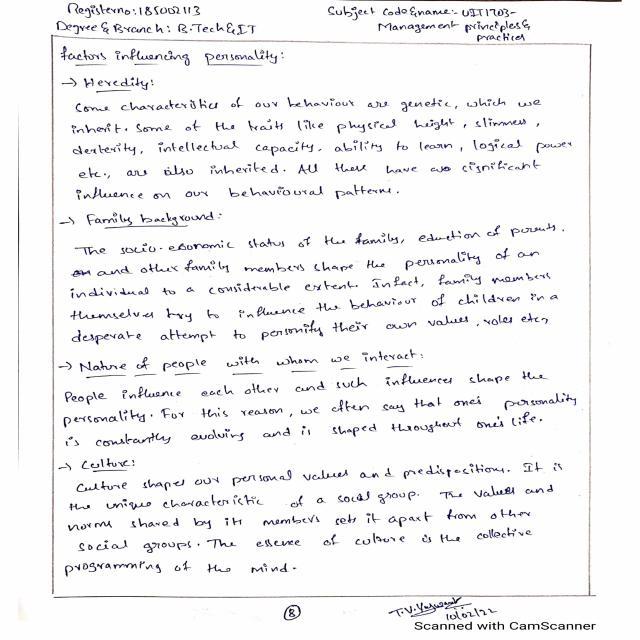 Registerno: 185002113
Subject Code&name:- UIT1703-
Degree & Branch: B.Tech & IT
Management principles &
practices
factors influencing personality:
→ Heredity:
Some characteristics of our behaviour are genetic, which we
inherit. Some of the traits like physical height, slimness,
dexterity, intellectual capacity, ability to learn, logical power
etc., are also inherited. All these have significant
influence on our behavioural patterns.
→ Family background:
The socio-economic status of the family, eduction of parents.
and other family members shape the personality of an
individual to a considerable extent. Infact, family members
themselves try to influence the behaviour of children in a
desperate attempt to personify their own values, roles etc,
→ Nature of people with whom we interact:
People influence each other and such influences shape the
personality. For this reason, we often say that one's personality
is constantly evolving and is shaped throughout one's life.
→ Culture:
Culture shapes our personal values and predispositions. It is
the unique characteristic of a social group. The values and
norms shared by its members sets it apart from other
social groups. The essence of culture is the collective
programming of the mind.
8
10/02/22
Scanned with CamScanner